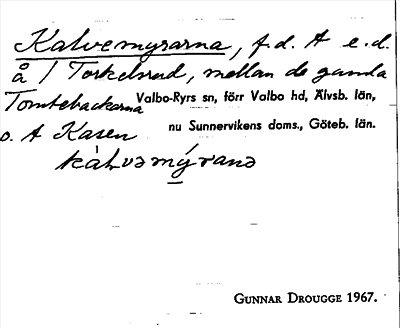 Kalvemyrarna, f.d. A e.d.
å 1 Torkelsrud, mellan de gamla
Tomtebackarna Valbo-Ryrs sn, förr Valbo hd, Älvsb. län,
o. A Kasen nu Sunnervikens doms., Göteb. län.
kàlvəmýrana
GUNNAR DROUGGE 1967.